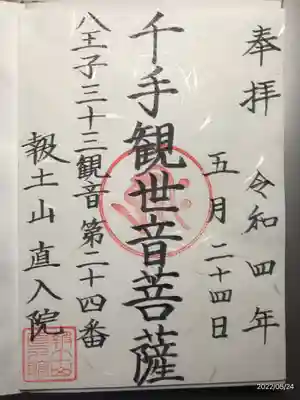 奉拝 令和四年
五月二十四日
千手観世音菩薩
八王子三十三観音 第二十四番
報土山 直入院
2022/05/24